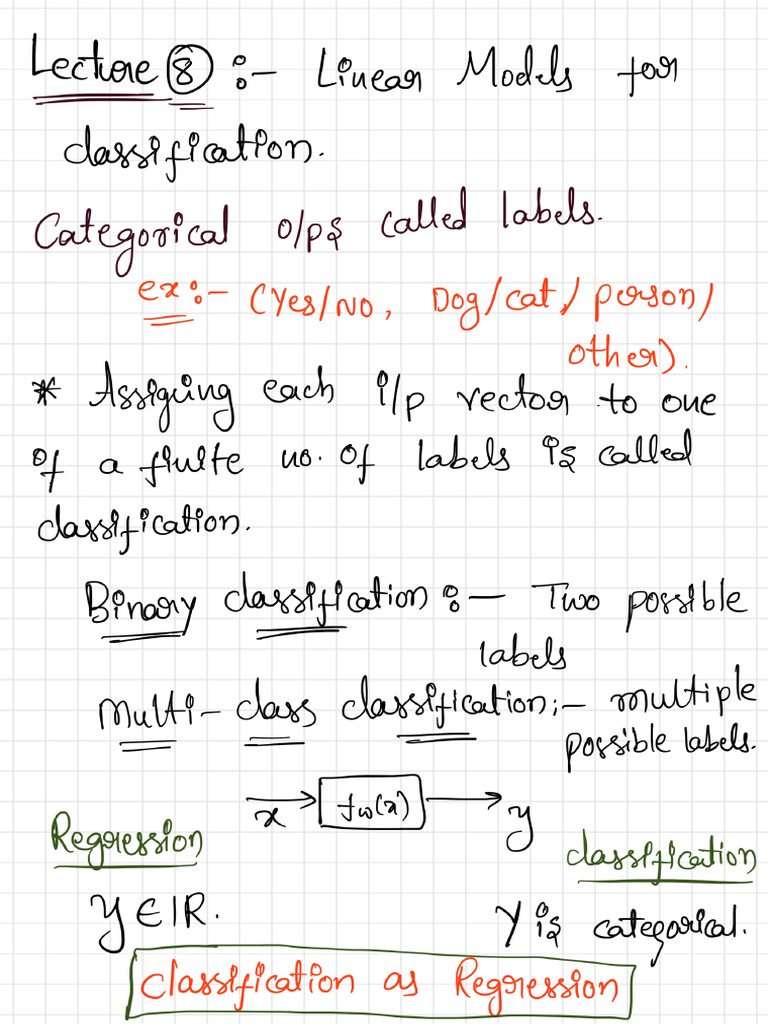 Lecture 8 :- Linear Models for
classification.
Categorical o/ps called labels.
ex:- (Yes/No, Dog/cat/person/
other).
* Assiging each i/p vector to one
of a finite no. of labels is called
classification.
Binary classification :- Two possible
labels
Multi-class classification:- multiple
possible labels.
x fw(x) y
Regression classification
Y ∈ IR. Y is categorical.
Classification as Regression